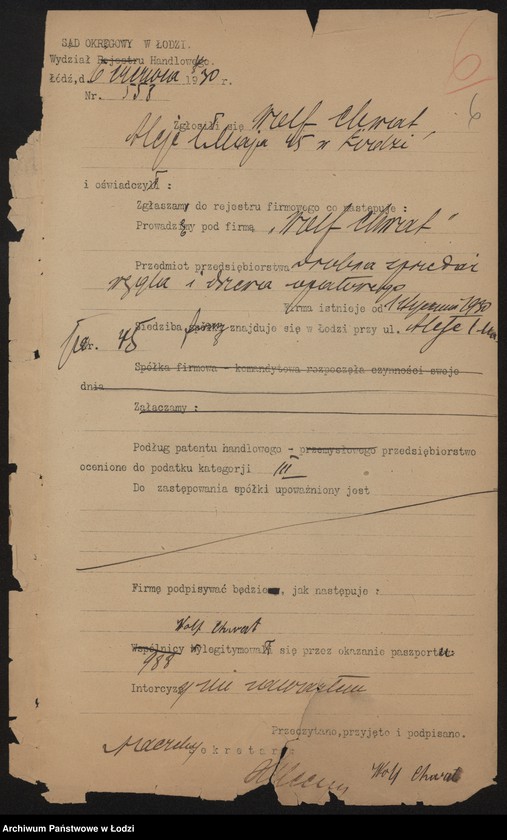 SĄD OKRĘGOWY W ŁODZI.
Wydział Rejestru Handlowego.
Łódź, d. 6 czerwca 1930 r.
Nr. 558
6
6
Zgłosił się Wolf Chwat
Aleje 1 Maja 45 w Łodzi
i oświadczył :
Zgłaszam do rejestru firmowego co następuje :
Prowadzę pod firmą „Wolf Chwat"
Przedmiot przedsiębiorstwa drobna sprzedaż
węgla i drzewa opałowego
Firma istnieje od 1 stycznia 1930
Siedziba firmy znajduje się w Łodzi przy ul. Aleje 1 Ma
ja nr. 45
Spółka firmowa - komandytowa rozpoczęła czynności swoje
dnia
Załączamy :
Podług patentu handlowego - przemysłowego przedsiębiorstwo
ocenione do podatku kategorji III
Do zastępowania spółki upoważniony jest
Firmę podpisywać będzie, jak następuje :
Wolf Chwat
Wspólnicy wylegitymował się przez okazanie paszportu
988
Intercyzy nie zawarłem
Przeczytano, przyjęto i podpisano.
Sekretarz
Wolf Chwat
Archiwum Państwowe w Łodzi